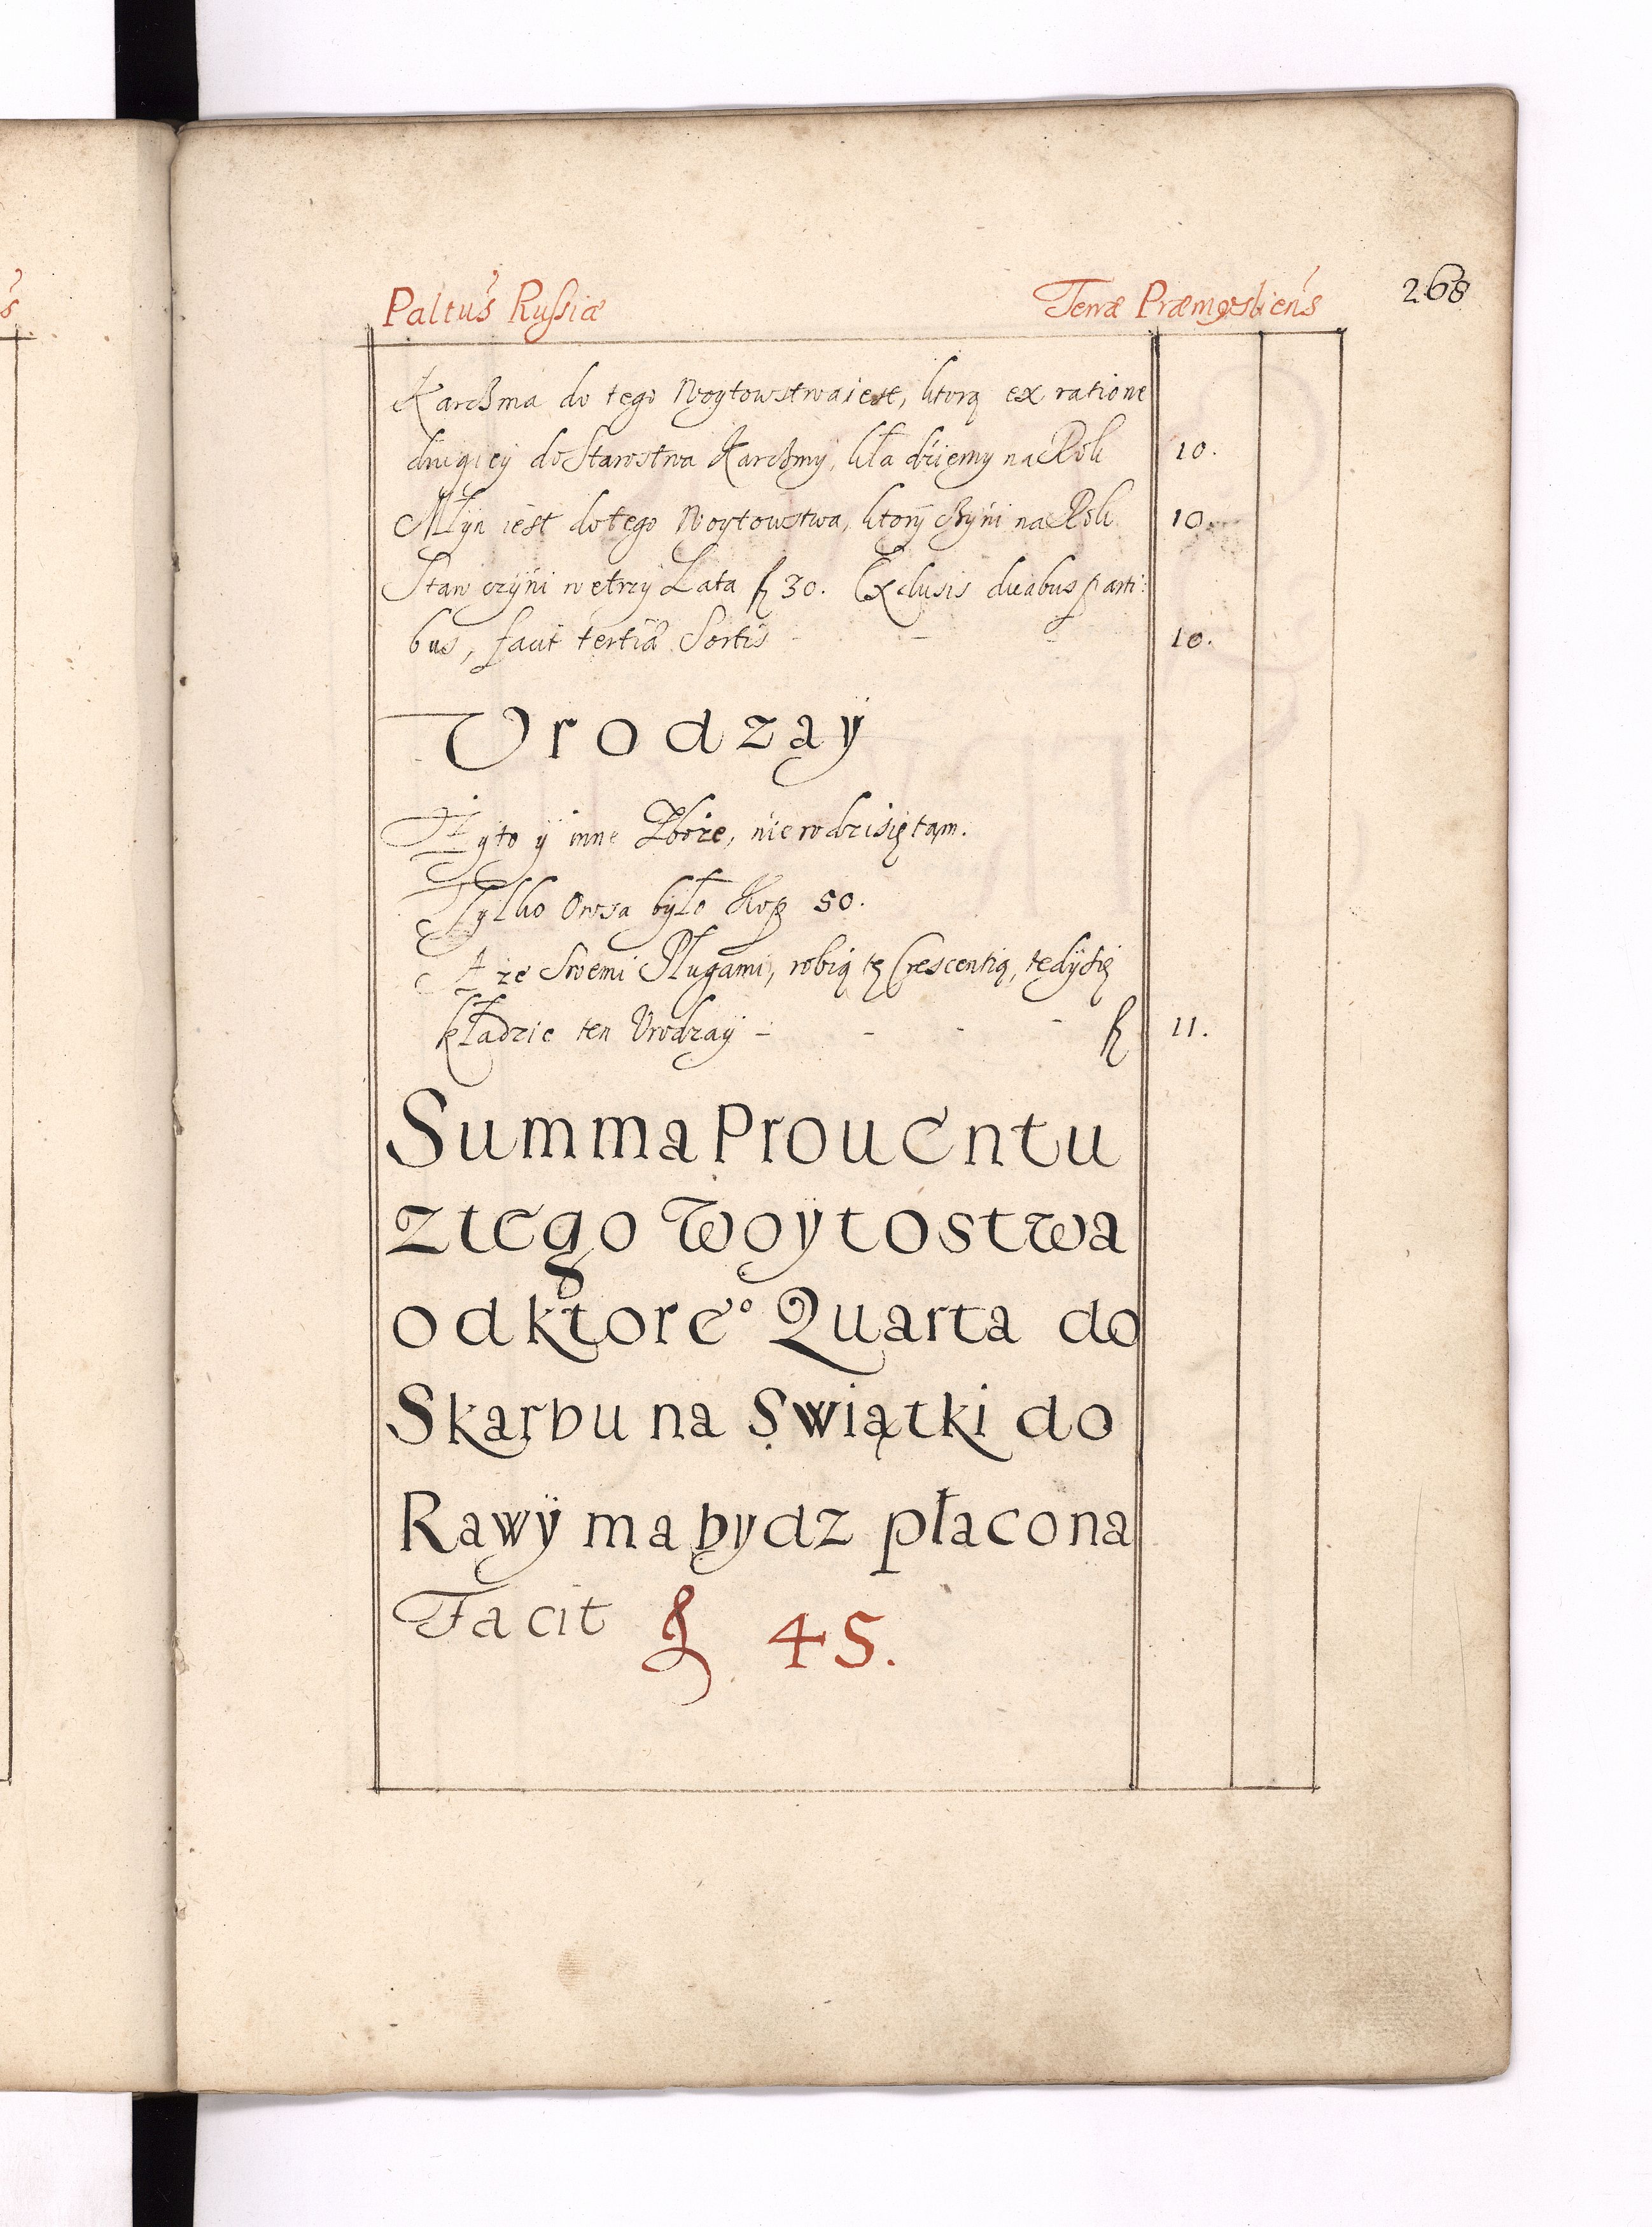 Paltus Russiæ Terræ Præmysliens 268
Karczma do tego Woytowstwa iest, ktorą ex ratione
drugiey do Starostwa Karczmy, kładziemy na Rok 10.
Młyn iest do tego Woytowstwa, ktory czyni na Rok 10.
Staw czyni w etrzy Lata f 30. Exclusis duabus parti:
bus, facit tertia Sortis 10.
Vrodzaÿ
Zyto ÿ inne Zboże, nie rodzi się tam.
Tylko Owsa było Kop 50.
A że Swemi Pługami, robią tę Crescentią, tedÿ się
kładzie ten Vrodzaÿ - - - - f 11.
Summa Prouentu
z tego Woÿtostwa
od ktoreº Quarta do
Skarbu na Swiątki do
Rawÿ ma bydz płacona
Facit f 45.